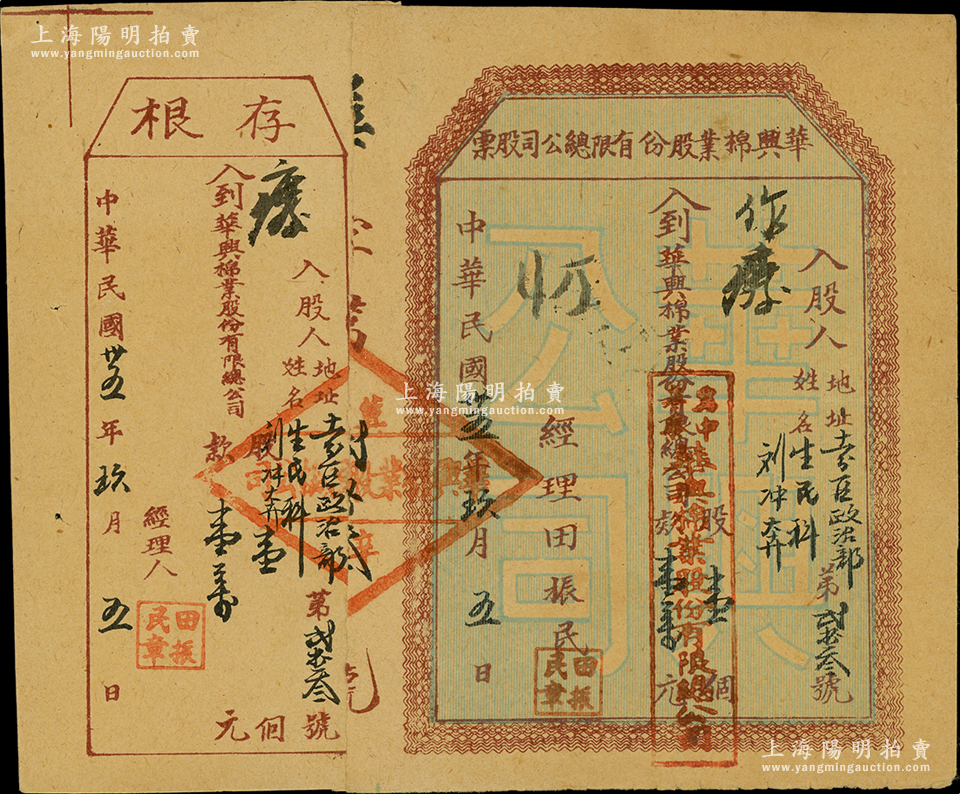 上海陽明拍賣
www.yangmingauction.com
上海陽明拍賣
www.yangmingauction.com
華興棉業股份有限總公司股票
入股人
地址
姓名
政治部
生民科
刘冲霖
第
號
作廢
入到華興棉業股份有限總公司
股
壹
個
款
壹萬
元
華興
公司
經理田振民
田振民章
中華民國卅五年玖月五日
存根
入股人
地址
姓名
政治部
生民科
刘冲霖
第
號
廢
入到華興棉業股份有限總公司
股
壹
個
款
壹萬
元
經理人
田振民章
中華民國卅五年玖月五日
上海陽明拍賣
www.yangmingauction.com
上海陽明拍賣
www.yangmingauction.com